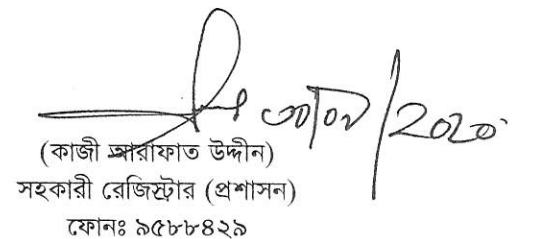 /2020
(কাজী আরাফাত উদ্দীন)
সহকারী রেজিস্ট্রার (প্রশাসন)
ফোনঃ ৯৫৮৮৪২৯